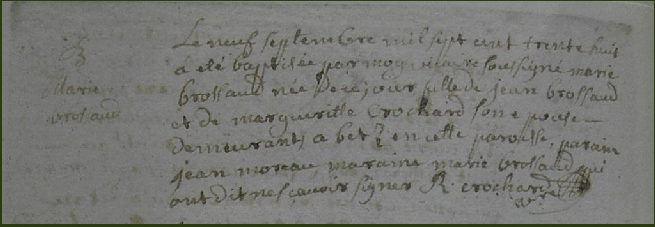 B
Marie
brossaud
Le neuf septembre mil sept cent trente huit
à été baptisée par moy vicaire soussigné marie
brossaud née de ce jour fille de jean brossaud
et de marguerille Crochard son epouse
demeurants a en cette paroisse, parain
jean moreau, maraine marie brossaud qui
ont dit ne sçavoir signer R. crochard